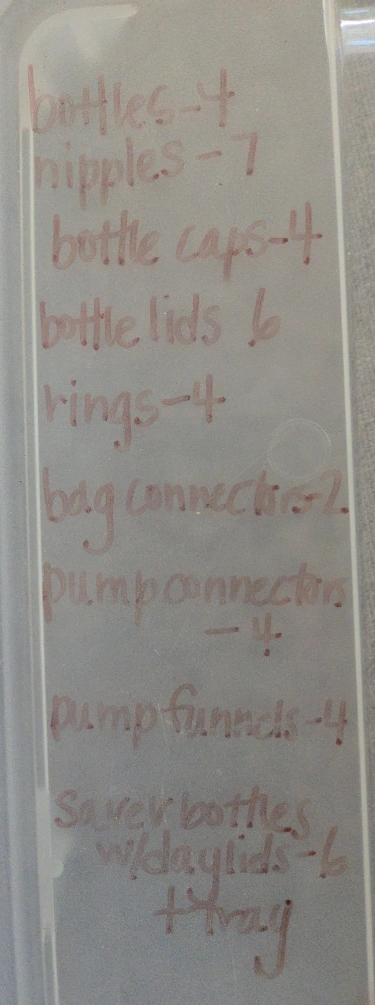 bottles-4
nipples-7
bottle caps-4
bottle lids 6
rings-4
bag connectors-2
pump connectors
-4
pump funnels-4
Saver bottles
w/day lids-6
+ tray